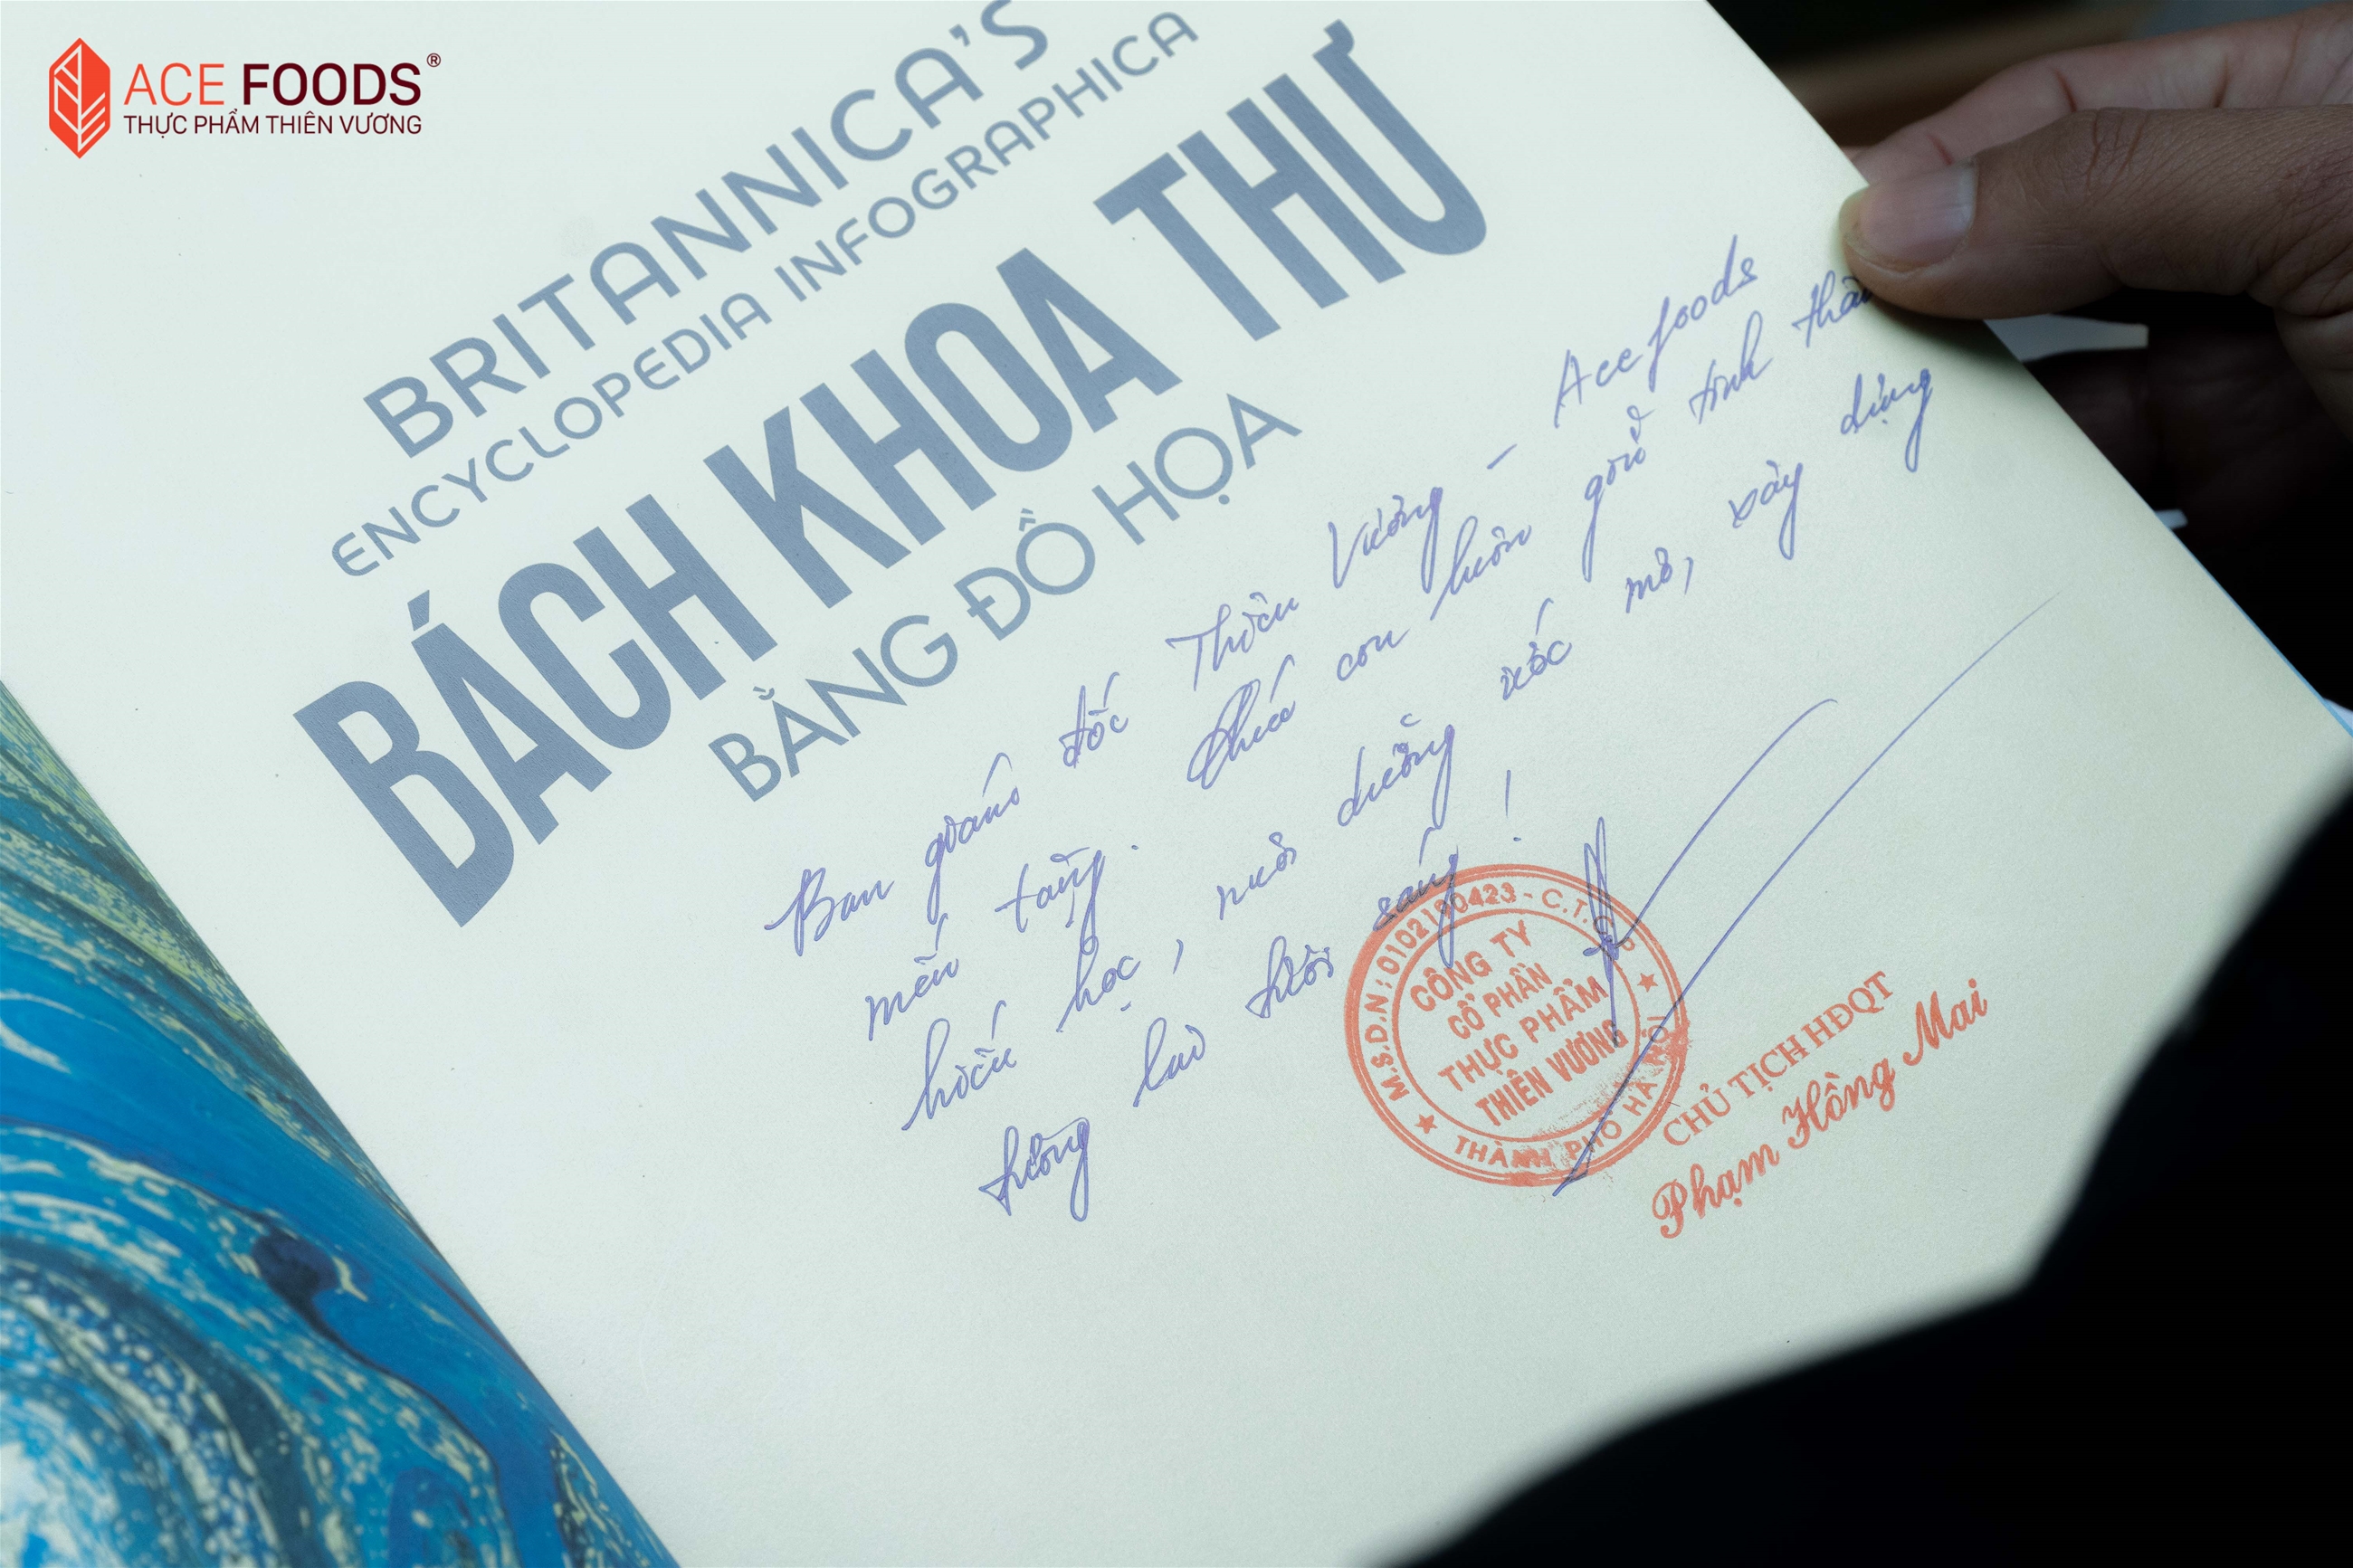 ACE FOODS®
THỰC PHẨM THIÊN VƯƠNG
BRITANNICA'S
ENCYCLOPEDIA INFOGRAPHICA
BÁCH KHOA THƯ
BẰNG ĐỒ HỌA
Ban giám đốc Thiên Vương - Acefoods
mến tặng. Chúc con luôn giữ tinh thần
hiếu học, nuôi dưỡng ước mơ, xây dựng
tương lai tươi sáng!
M.S.D.N: 0102190423 - C.T.C.P
CÔNG TY
CỔ PHẦN
THỰC PHẨM
THIÊN VƯƠNG
THÀNH PHỐ HÀ NỘI
CHỦ TỊCH HĐQT
Phạm Hồng Mai